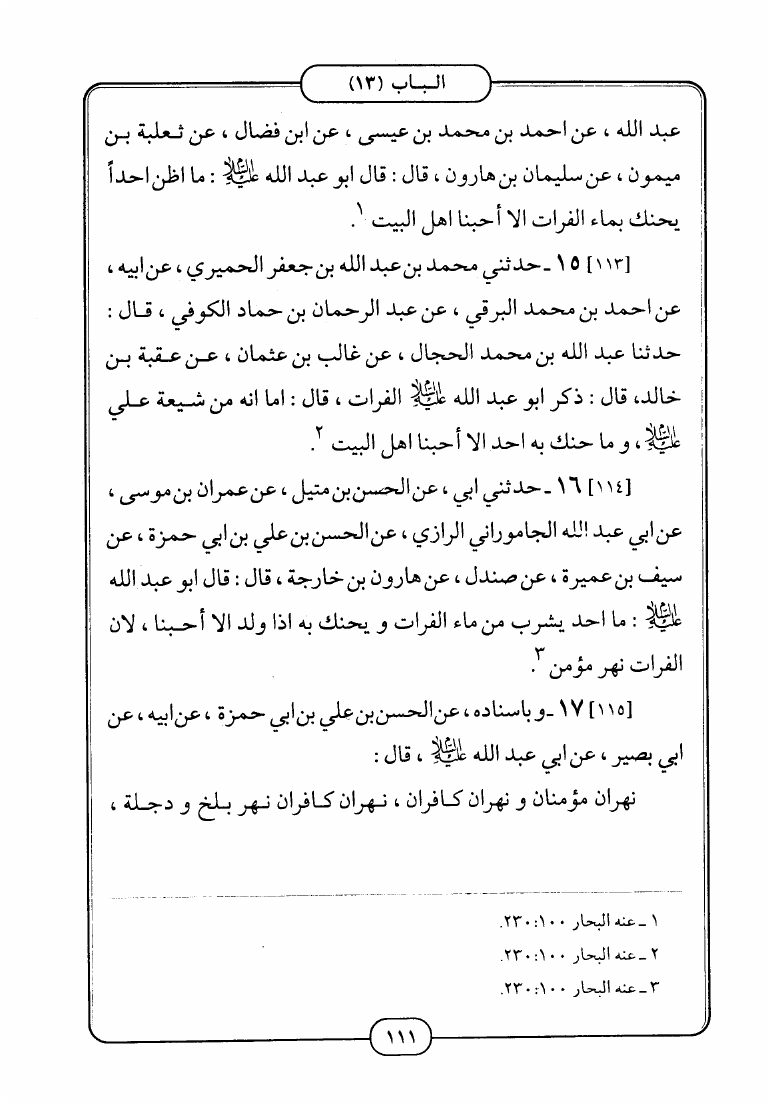 البـاب (١٣)
عبد الله ، عن احمد بن محمد بن عيسى ، عن ابن فضال ، عن ثـعلبة بـن
ميمون ، عن سليمان بن هارون ، قال : قال ابو عبد الله عليه السلام : ما اظن احداً
يحنك بماء الفرات الا أحبنا اهل البيت ١.
[١١٣] ١٥ ـ حدثني محمد بن عبد الله بن جعفر الحميري ، عن ابيه ،
عن احمد بن محمد البرقي ، عن عبد الرحمان بن حماد الكوفي ، قـال :
حدثنا عبد الله بن محمد الحجال ، عن غالب بن عثمان ، عـن عـقبة بـن
خالد، قال : ذكر ابو عبد الله عليه السلام الفرات ، قال : اما انه من شـيعة عـلي
عليه السلام ، و ما حنك به احد الا أحبنا اهل البيت ٢.
[١١٤] ١٦ ـ حدثني ابي ، عن الحسن بن متيل ، عن عمران بن موسى ،
عن ابي عبد الله الجاموراني الرازي ، عن الحسن بن علي بن ابي حمزة ، عن
سيف بن عميرة ، عن صندل ، عن هارون بن خارجة ، قال : قال ابو عبد الله
عليه السلام : ما احد يشرب من ماء الفرات و يحنك به اذا ولد الا أحـبنا ، لان
الفرات نهر مؤمن ٣.
[١١٥] ١٧ ـ و باسناده ، عن الحسن بن علي بن ابي حمزة ، عن ابيه ، عن
ابي بصير ، عن ابي عبد الله عليه السلام ، قال :
نهران مؤمنان و نهران كـافران ، نـهران كـافران نـهر بـلخ و دجـلة ،
١ ـ عنه البحار ١٠٠:٢٣٠.
٢ ـ عنه البحار ١٠٠:٢٣٠.
٣ ـ عنه البحار ١٠٠:٢٣٠.
١١١